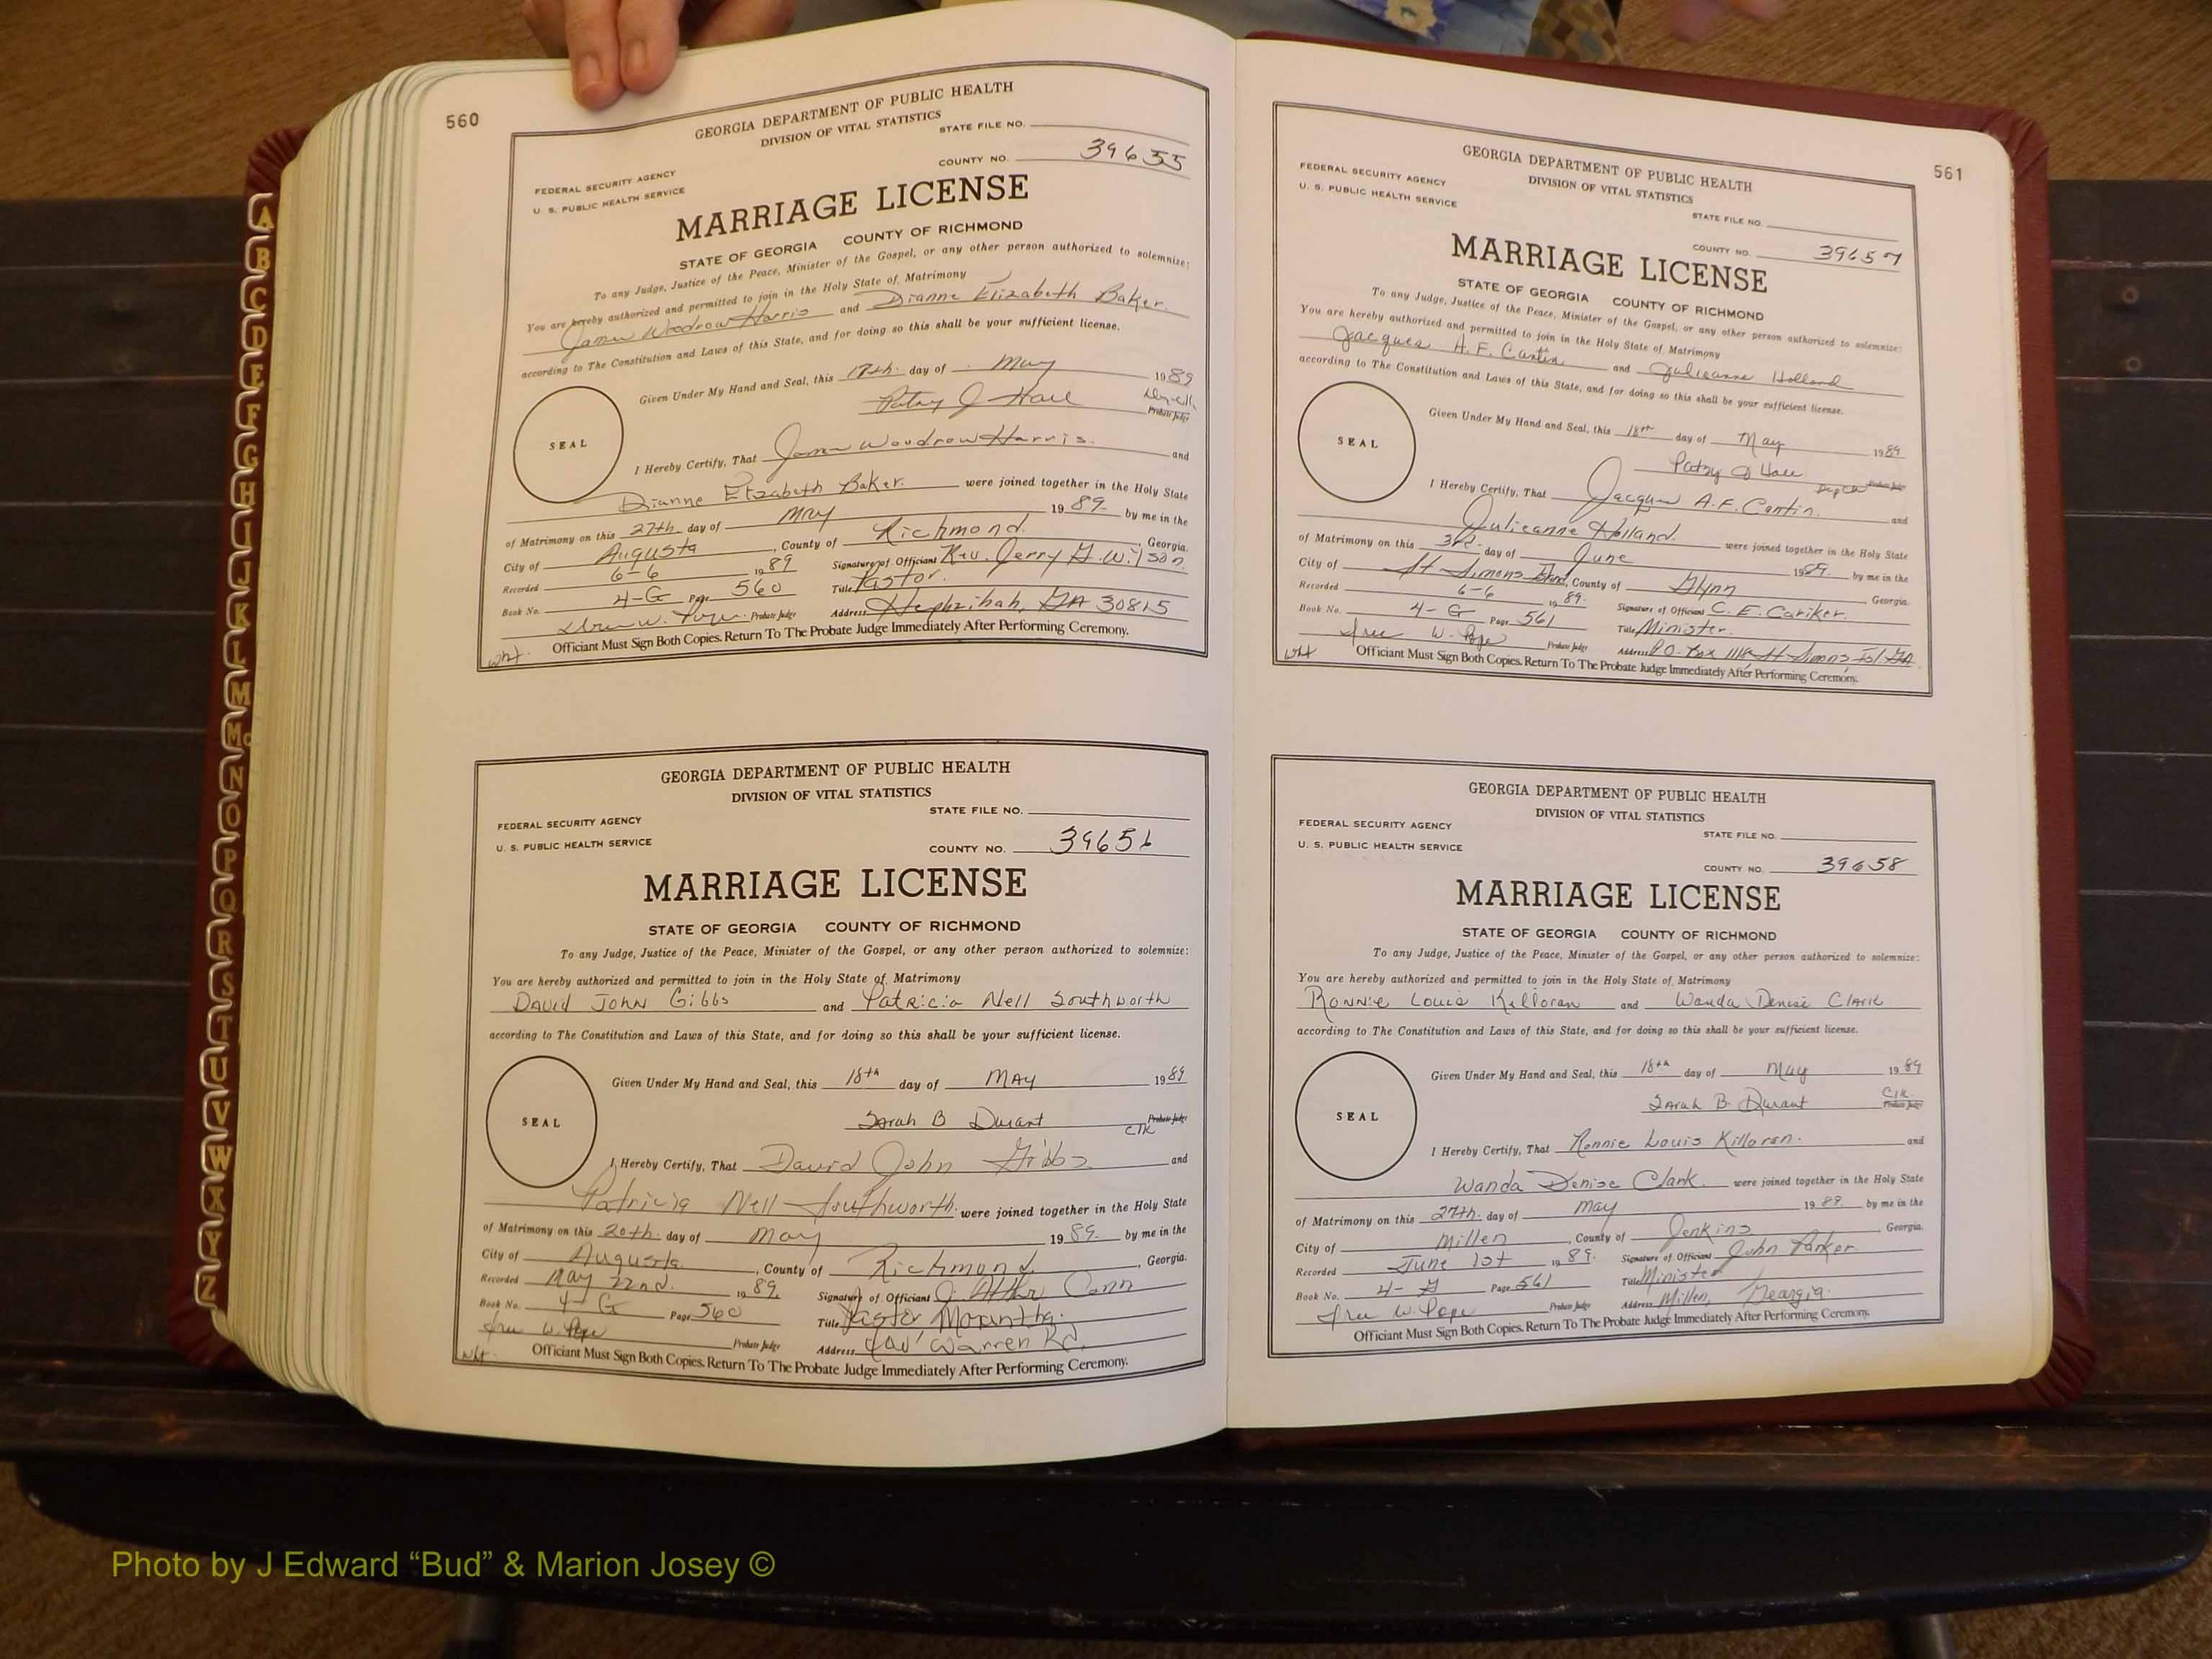 560
GEORGIA DEPARTMENT OF PUBLIC HEALTH
DIVISION OF VITAL STATISTICS
STATE FILE NO.
COUNTY NO. 39655
FEDERAL SECURITY AGENCY
U. S. PUBLIC HEALTH SERVICE
MARRIAGE LICENSE
STATE OF GEORGIA COUNTY OF RICHMOND
To any Judge, Justice of the Peace, Minister of the Gospel, or any other person authorized to solemnize:
You are hereby authorized and permitted to join in the Holy State of Matrimony
James Woodrow Harris and Dianne Elizabeth Baker.
according to The Constitution and Laws of this State, and for doing so this shall be your sufficient license.
Given Under My Hand and Seal, this day of May 1989
Patsy J Hall
Probate Judge
SEAL
I Hereby Certify, That James Woodrow Harris. and
Dianne Elizabeth Baker. were joined together in the Holy State
of Matrimony on this 27th. day of May 19 89. by me in the
City of Augusta, County of Richmond. Georgia.
Recorded 6-6 19 89 Signature of Officiant Rev. Jerry G. Wilson.
Book No. 4-G Page 560 Title Pastor.
Probate Judge Address Hephzibah, GA 30815
Officiant Must Sign Both Copies. Return To The Probate Judge Immediately After Performing Ceremony.
wht.
GEORGIA DEPARTMENT OF PUBLIC HEALTH
DIVISION OF VITAL STATISTICS
STATE FILE NO.
FEDERAL SECURITY AGENCY
U. S. PUBLIC HEALTH SERVICE
COUNTY NO. 39656
MARRIAGE LICENSE
STATE OF GEORGIA COUNTY OF RICHMOND
To any Judge, Justice of the Peace, Minister of the Gospel, or any other person authorized to solemnize:
You are hereby authorized and permitted to join in the Holy State of Matrimony
David John Gibbs and Patricia Nell Southworth
according to The Constitution and Laws of this State, and for doing so this shall be your sufficient license.
Given Under My Hand and Seal, this 18th day of May 1989
Sarah B Durant Probate Judge
Clk
SEAL
I Hereby Certify, That David John Gibbs and
Patricia Nell Southworth. were joined together in the Holy State
of Matrimony on this 20th. day of May 19 89. by me in the
City of Augusta., County of Richmond. Georgia.
Recorded May 22nd. 19 89. Signature of Officiant
Book No. 4-G Page 560 Title Pastor
W. Pope Probate Judge Address Warren Rd.
Officiant Must Sign Both Copies. Return To The Probate Judge Immediately After Performing Ceremony.
wht.
561
GEORGIA DEPARTMENT OF PUBLIC HEALTH
DIVISION OF VITAL STATISTICS
FEDERAL SECURITY AGENCY
U. S. PUBLIC HEALTH SERVICE
STATE FILE NO.
COUNTY NO. 39657
MARRIAGE LICENSE
STATE OF GEORGIA COUNTY OF RICHMOND
To any Judge, Justice of the Peace, Minister of the Gospel, or any other person authorized to solemnize:
You are hereby authorized and permitted to join in the Holy State of Matrimony
Jacques A. F. Cantin and Julieanne Holland
according to The Constitution and Laws of this State, and for doing so this shall be your sufficient license.
Given Under My Hand and Seal, this 18th day of May 1989
Patsy J Hall
Dep Clk Probate Judge
SEAL
I Hereby Certify, That Jacques A.F. Cantin. and
Julieanne Holland. were joined together in the Holy State
of Matrimony on this 3rd. day of June 1989. by me in the
City of St Simons Island, County of Glynn Georgia.
Recorded 6-6 19 89. Signature of Officiant C. E. Cariker.
Book No. 4-G Page 561 Title Minister.
W. Pope Probate Judge Address P.O. Box St Simons Isl GA
Officiant Must Sign Both Copies. Return To The Probate Judge Immediately After Performing Ceremony.
wht
GEORGIA DEPARTMENT OF PUBLIC HEALTH
DIVISION OF VITAL STATISTICS
FEDERAL SECURITY AGENCY
U. S. PUBLIC HEALTH SERVICE
STATE FILE NO.
COUNTY NO. 39658
MARRIAGE LICENSE
STATE OF GEORGIA COUNTY OF RICHMOND
To any Judge, Justice of the Peace, Minister of the Gospel, or any other person authorized to solemnize:
You are hereby authorized and permitted to join in the Holy State of Matrimony
Ronnie Louis Killoran and Wanda Denise Clark
according to The Constitution and Laws of this State, and for doing so this shall be your sufficient license.
Given Under My Hand and Seal, this 18th day of May 19 89
Sarah B Durant Clk
Probate Judge
SEAL
I Hereby Certify, That Ronnie Louis Killoran. and
Wanda Denise Clark. were joined together in the Holy State
of Matrimony on this 27th. day of May 19 89. by me in the
City of Millen, County of Jenkins Georgia.
Recorded June 1st 19 89. Signature of Officiant John Parker.
Book No. 4-G Page 561 Title Minister
W. Pope Probate Judge Address Millen, Georgia.
Officiant Must Sign Both Copies. Return To The Probate Judge Immediately After Performing Ceremony.
A
B
C
D
E
F
G
H
I
J
K
L
M
Mc
N
O
P
Q
R
S
T
U
V
W
X
Y
Z
Photo by J Edward “Bud” & Marion Josey ©